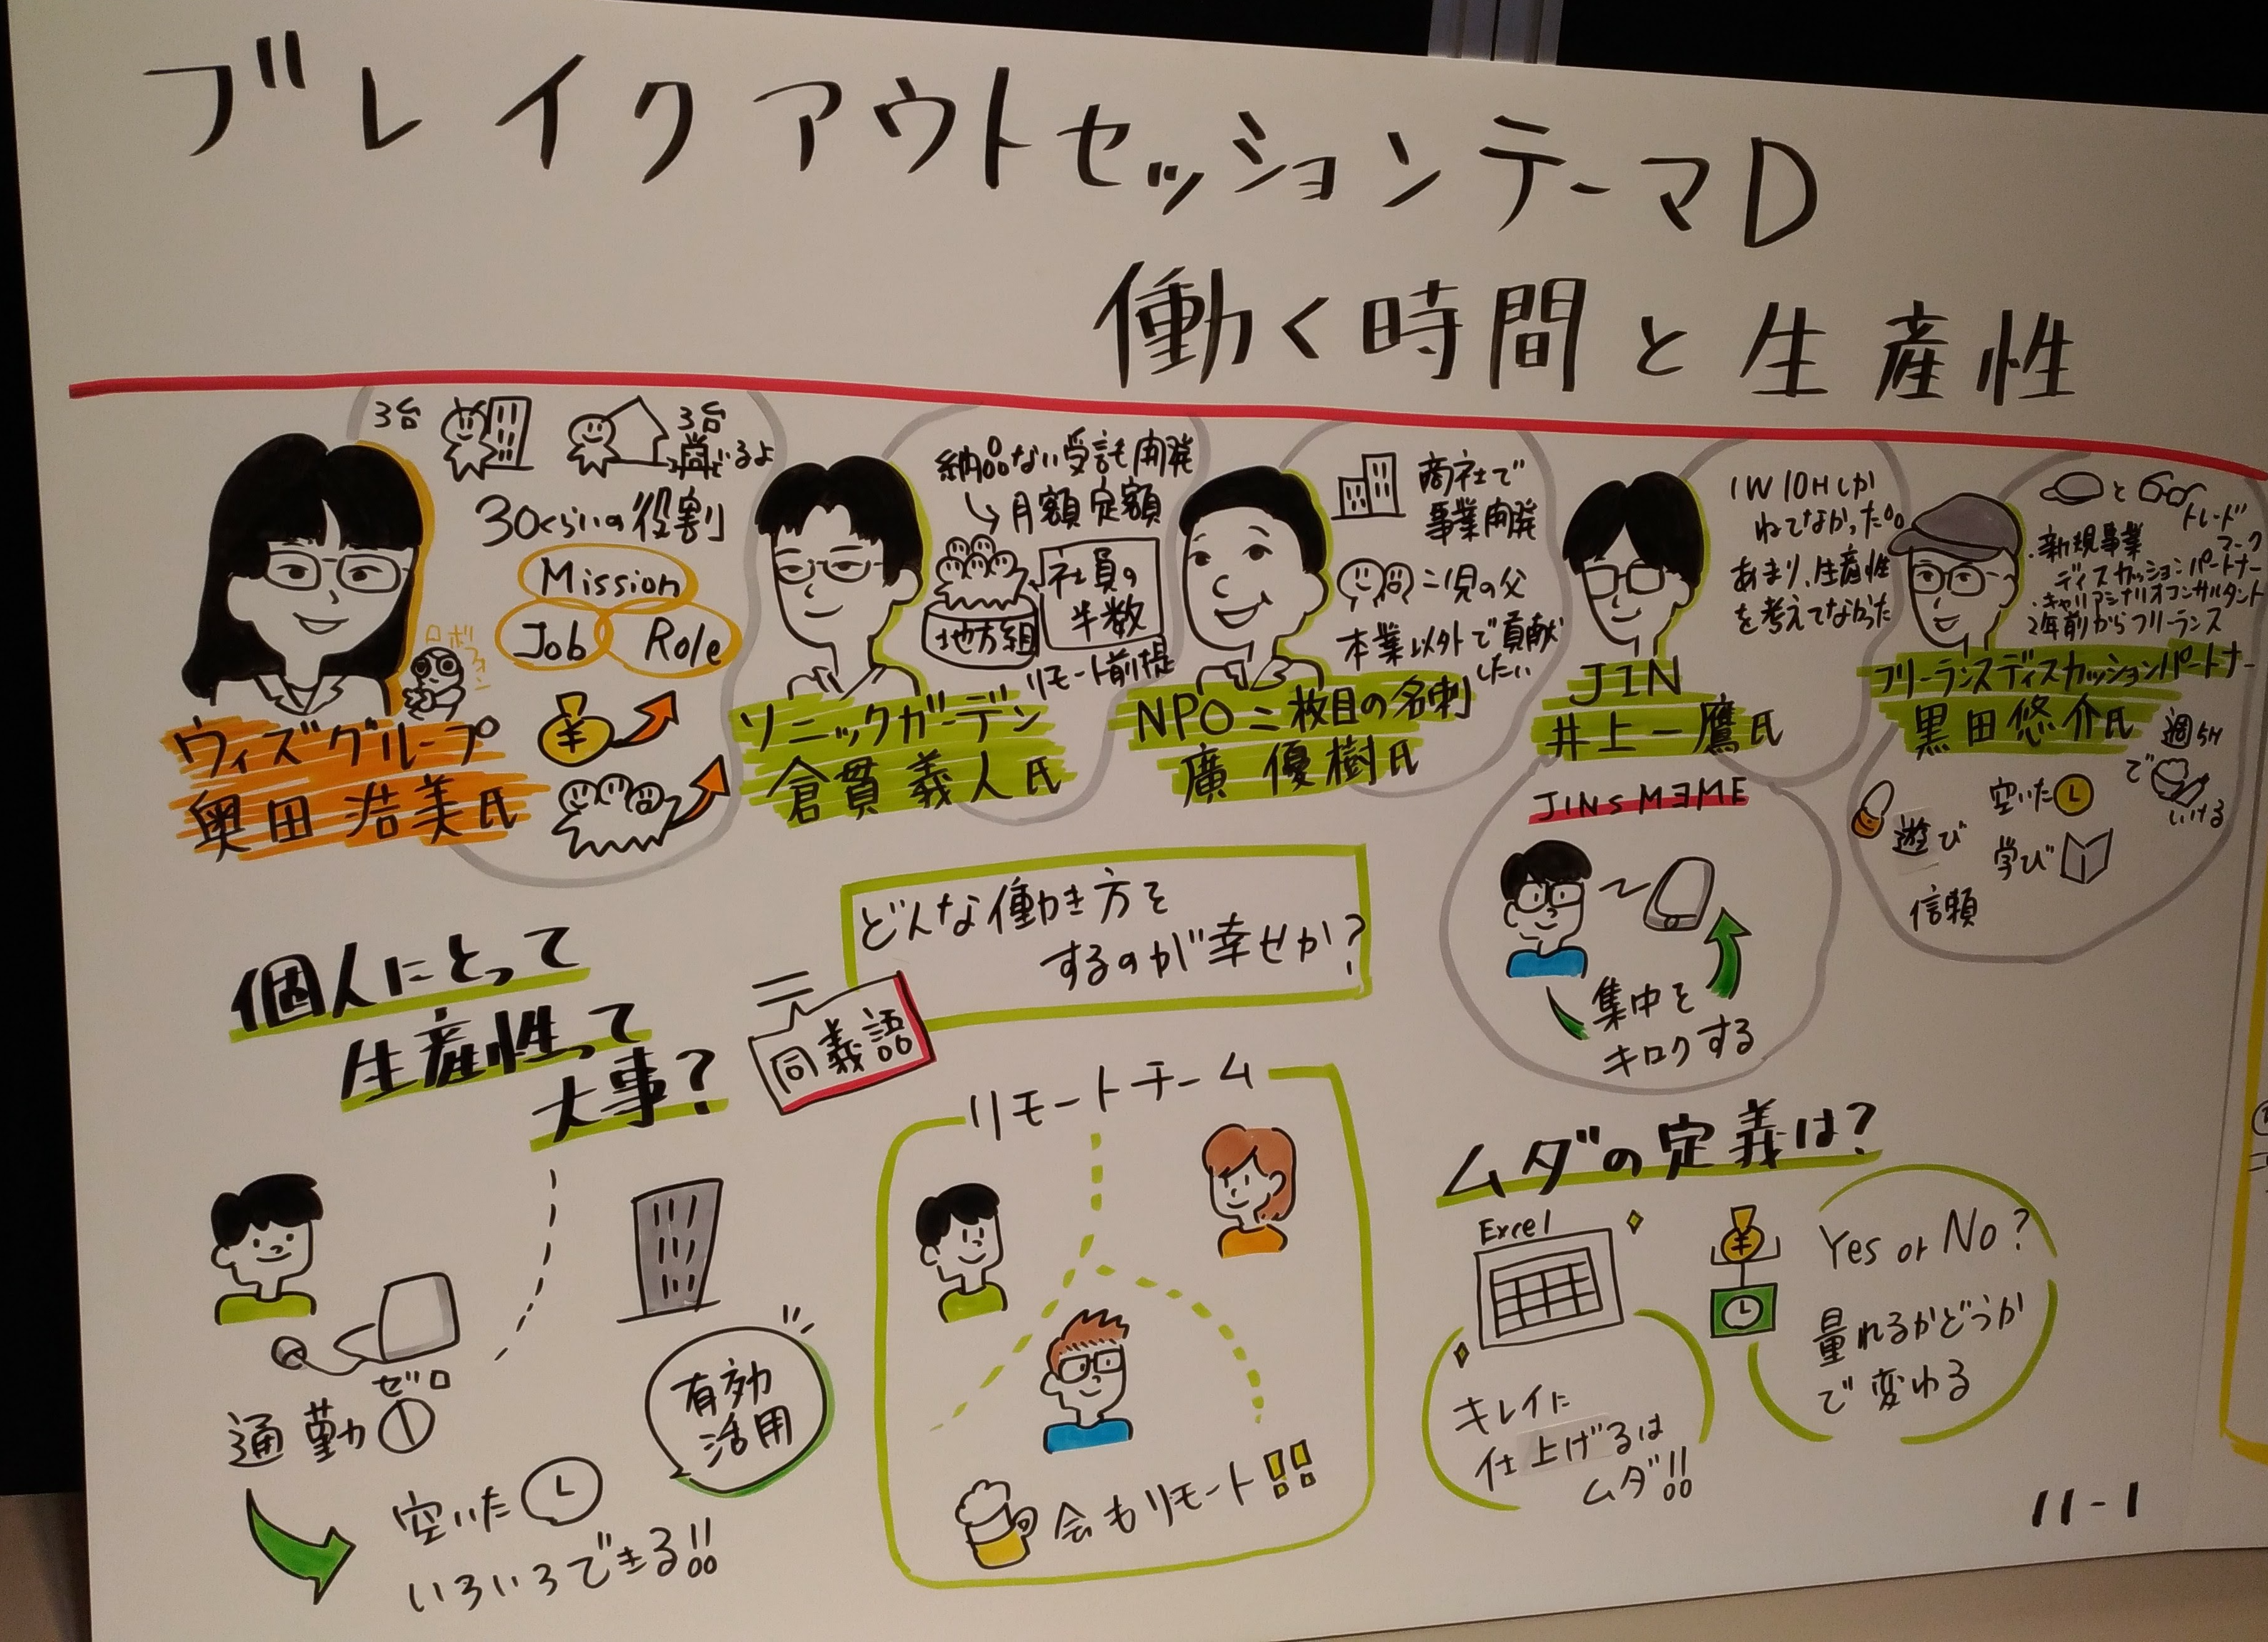 ブレイクアウトセッションテーマD
働く時間と生産性
3台
3台
30くらいの役割
Mission
Job
Role
ロボ
¥
ウィズグループ
奥田 浩美氏
納品ない受託開発
月額定額
社員の
半数
地方組
リモート前提
ソニックガーデン
倉貫 義人氏
商社で
事業開発
二児の父
本業以外で貢献
したい
NPO二枚目の名刺
廣 優樹氏
1W10Hしか
ねてなかった
あまり、生産性
を考えてなかった
JIN
井上一鷹氏
JINS MEME
集中を
キロクする
と
トレード
マーク
・新規事業
ディスカッションパートナー
・キャリアシナリオコンサルタント
2年前からフリーランス
フリーランスディスカッションパートナー
黒田悠介氏
週5H
で
いける
空いた
遊び
学び
信頼
個人にとって
生産性って
大事?
どんな働き方を
するのが幸せか?
同義語
通勤
ゼロ
空いた
いろいろできる!!
有効
活用
リモートチーム
会もリモート!!
ムダの定義は?
Excel
キレイに
仕上げるは
ムダ!!
¥
Yes or No?
量れるかどうか
で変わる
11-1